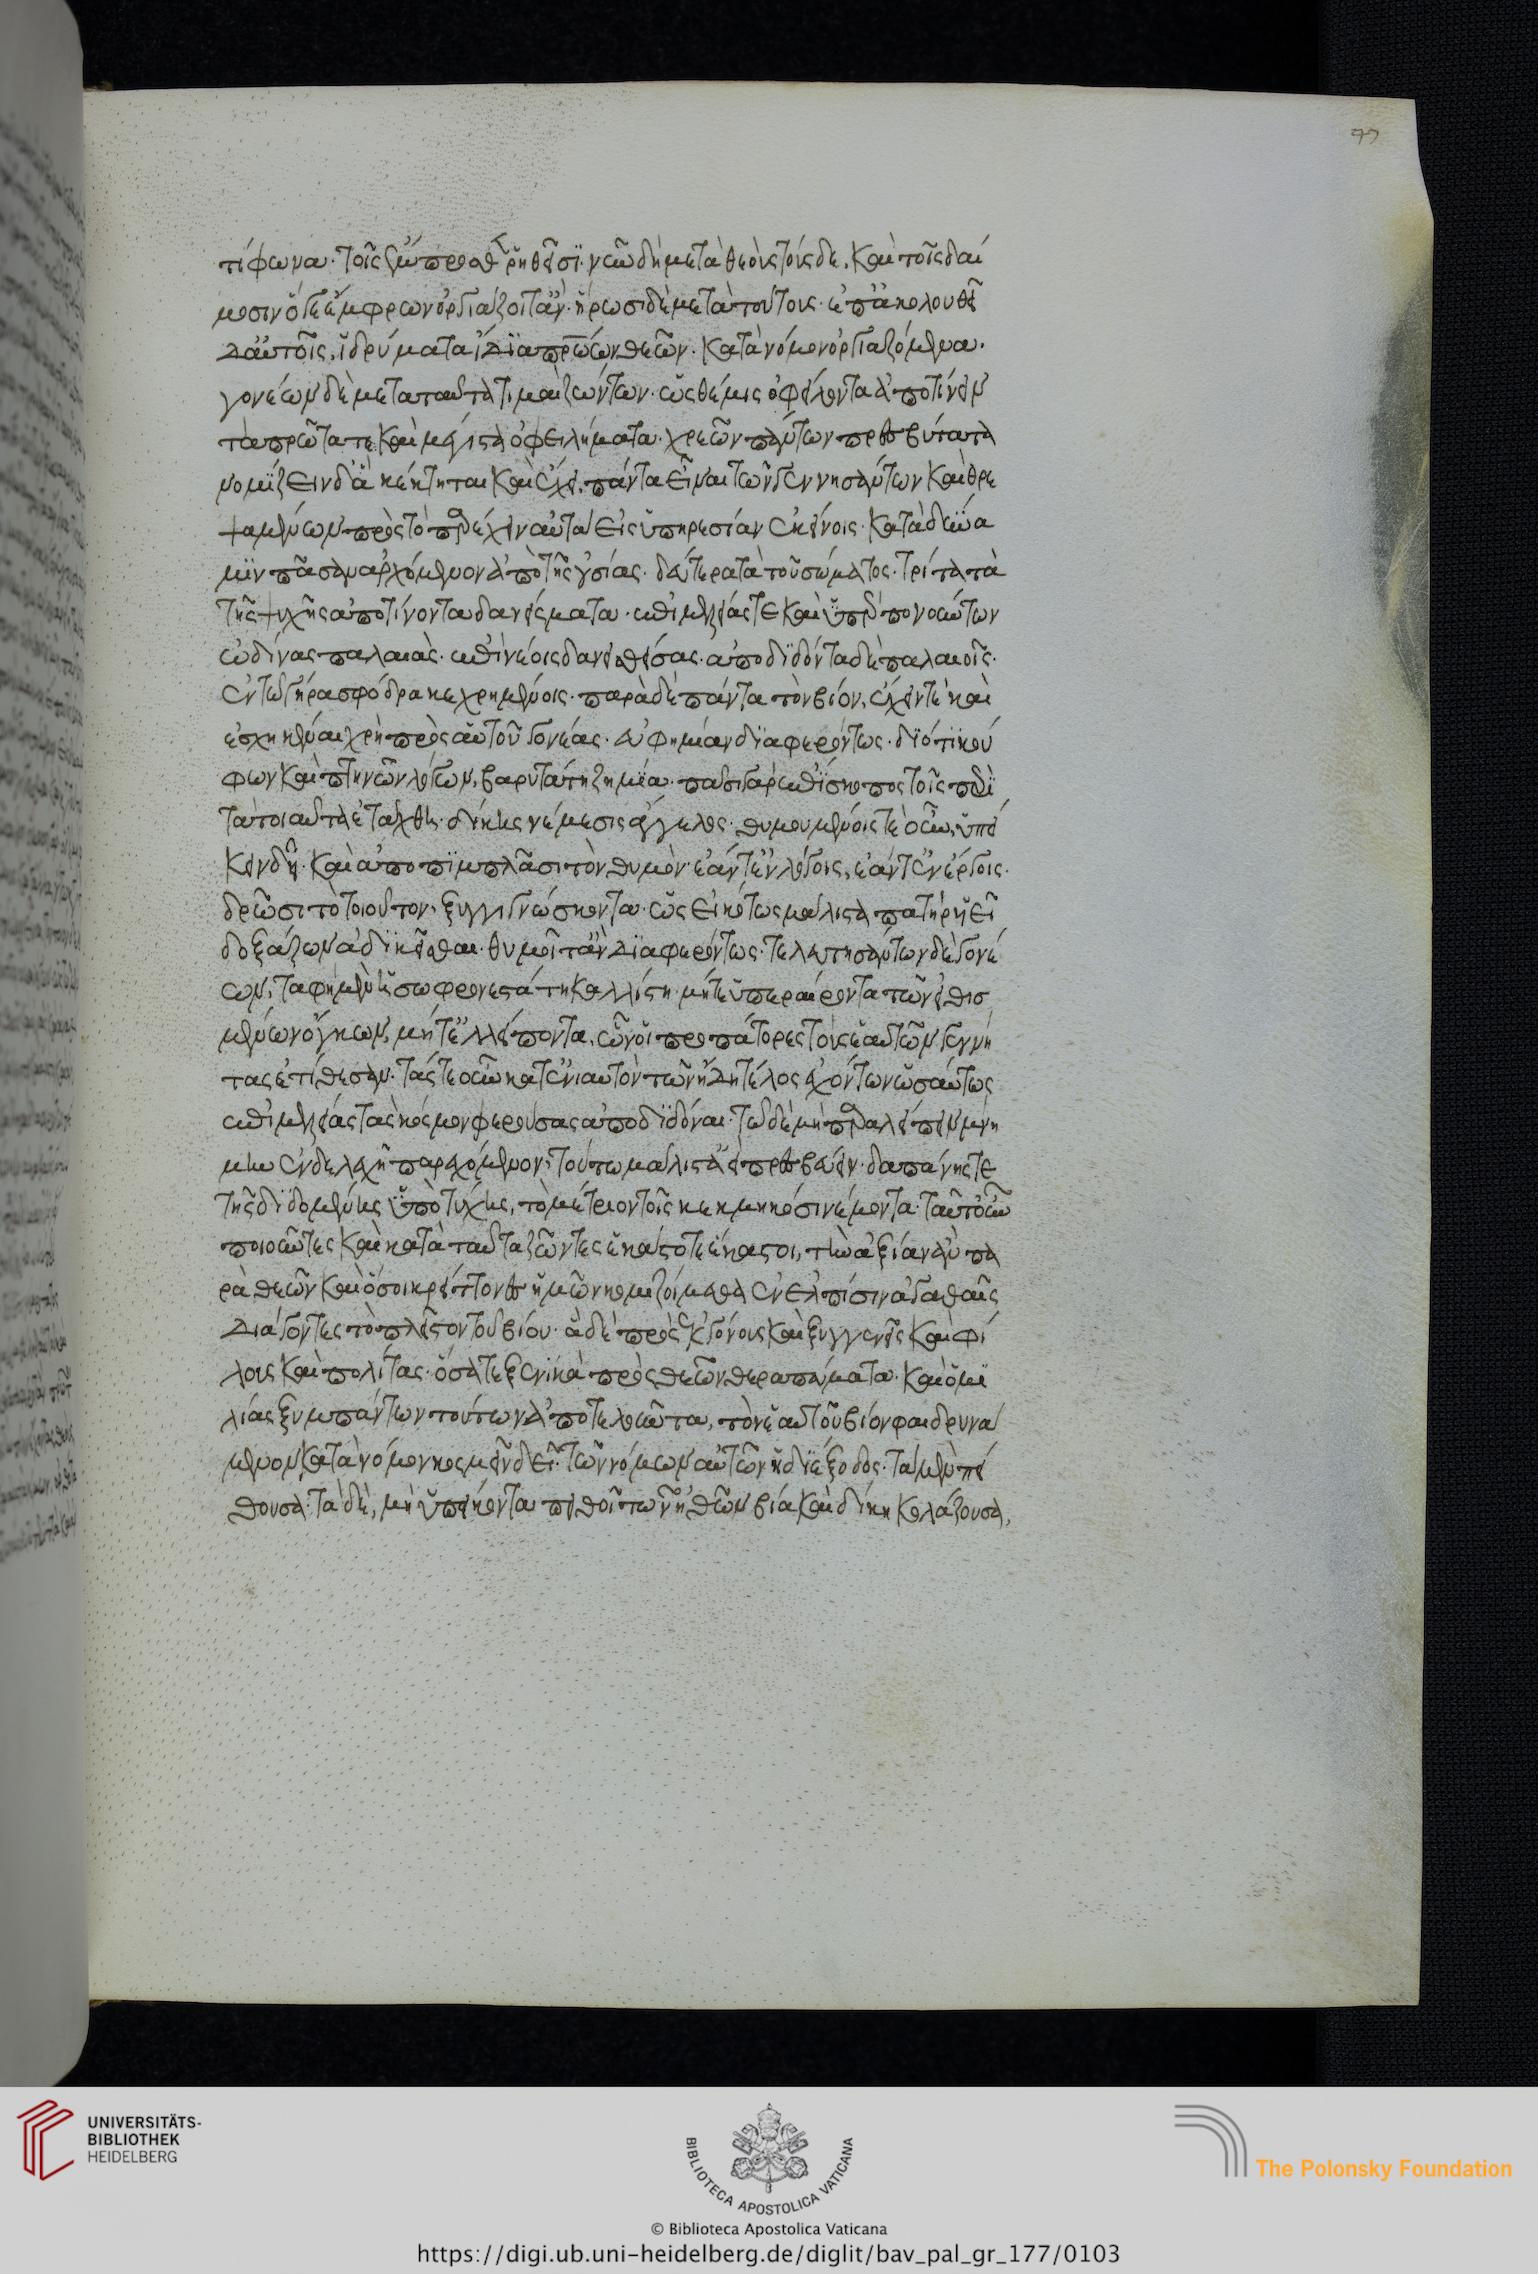 τίφωνα· τοῖς ἔμπροσθεν ῥηθεῖσϊ· νῦν δὴ μετὰ θεοὺς τούσδε. καὶ τοῖς δαί
μοσιν ὅ γε ἔμφρων ὀργιάζοιτ' ἄν· ἥρωσι δὲ μετὰ τούτους· ἐπακολουθεῖ
δ' αὐτοῖς, ἱδρύματα ἴδϊα πρώων θεῶν· κατὰ νόμον ὀργιαζόμενα·
γονέων δὲ μετα ταῦτα τιμαὶ ζώντων· ὡς θέμις ὀφείλοντα ἀποτίνειν
τὰ πρῶτα τε καὶ μέγιστα ὀφειλήματα· χρεῶν πάντων πρεσβύτατα
νομίζειν δ' ἃ κέκτηται καὶ ἔχει, πάντα εἶναι τῶν γεννησάντων καὶ θρε
ψαμένων πρὸς τὸ παρέχειν αὐτὰ εἰς ὑπηρεσίαν ἐκείνοις· κατὰ δύνα
μϊν πᾶσαν αρχόμενον ἀπὸ τῆς οὐσίας· δεύτερα τὰ τοῦ σώματος· τρίτα τὰ
τῆς ψυχῆς αποτίνοντα δανείσματα· ἐπιμελείας τε καὶ ὑπερπονούντων
ὠδίνας παλαιὰς· ἐπὶ νέοις δανεισθείσας· αποδϊδόντα δὲ παλαιοῖς·
ἐν τῶ γήρα σφόδρα κεχρημένοις· παρὰ δὲ πάντα τὸν βίον, ἔχειν τὲ καὶ
ἐσχηκέναι χρὴ πρὸς αὑτοῦ γονέας· εὐφημίαν δϊαφερόντως· δϊότϊ κού
φων καὶ πτηνῶν λόγων, βαρυτάτη ζημϊα· πᾶσι γὰρ ἐπΐσκοπος τοῖς περὶ
τὰ τοιαῦτα ἐτάχθη· δίκης νέμεσις ἄγγελος· θυμουμένοις τὲ οὖν, ὑπεί
κειν δεῖ· καὶ αποπϊμπλᾶσι τὸν θυμὸν· ἐάν τ' ἐν λόγοις, ἐάν τ' ἐν ἔργοις·
δρῶσι τὸ τοιοῦτον, ξυγγιγνώσκοντα· ὡς εἰκότως μάλιστα πατὴρ ὑεῖ
δοξάζων ἀδϊκεῖσθαι· θυμοῖτ' ἂν δϊαφερόντως· τελευτησάντων δὲ γονέ
ων, ταφὴ μὲν ἡ σωφρονεστάτη καλλίστη· μήτε ὑπεραίροντα τῶν εἰθισ
μένων ὄγκων, μήτ' ἐλλείποντα, ὧν οἱ προπάτορες τοὺς ἑαυτῶν γεννή
τας ἐτίθεσαν· τάς τε οὖν κατ' ἐνιαυτὸν τῶν ἤδη τέλος ἐχόντων ὡσαύτως
ἐπιμελείας τὰς κόσμον φερούσας αποδϊδόναι· τῶ δὲ μὴ παραλείπειν μνή
μην ἐνδελεχῆ παρεχόμενον, τούτω μάλιστ' ἀεὶ πρεσβεύειν· δαπάνης τε
τῆς δϊδομένης ὑπὸ τύχης, τὸ μέτριον τοῖς κεκμηκόσι νέμοντα· ταῦτ' οὖν
ποιοῦντες καὶ κατὰ ταῦτα ζῶντες ἑκάστοτε ἕκαστοι, τὴν ἀξίαν ἂν πα
ρὰ θεῶν καὶ ὅσοι κρείττονες ἡμῶν κομιζοίμεθα ἐν ἐλπίσιν ἀγαθαῖς
διάγοντες τὸ πλεῖστον τοῦ βίου· ἃ δὲ πρὸς ἐκγόνους καὶ ξυγγενεῖς καὶ φί
λους καὶ πολίτας· ὅσα τε ξενϊκὰ πρὸς θεῶν θεραπεύματα· καὶ ὁμϊ
λίας ξυμπάντων τούτων ἀποτελοῦντα, τὸν ἑαυτοῦ βίον φαιδρυνά
μενον κατὰ νόμον κοσμεῖν δεῖ· τῶν νόμων αὐτῶν ἡ δϊέξοδος· τὰ μὲν πεί
θουσα· τὰ δὲ, μὴ ὑπείκοντα πειθοῖ τῶν ἠθῶν βία καὶ δίκη κολάζουσα,
77
UNIVERSITÄTS-
BIBLIOTHEK
HEIDELBERG
BIBLIOTECA APOSTOLICA VATICANA
The Polonsky Foundation
© Biblioteca Apostolica Vaticana
https://digi.ub.uni-heidelberg.de/diglit/bav_pal_gr_177/0103